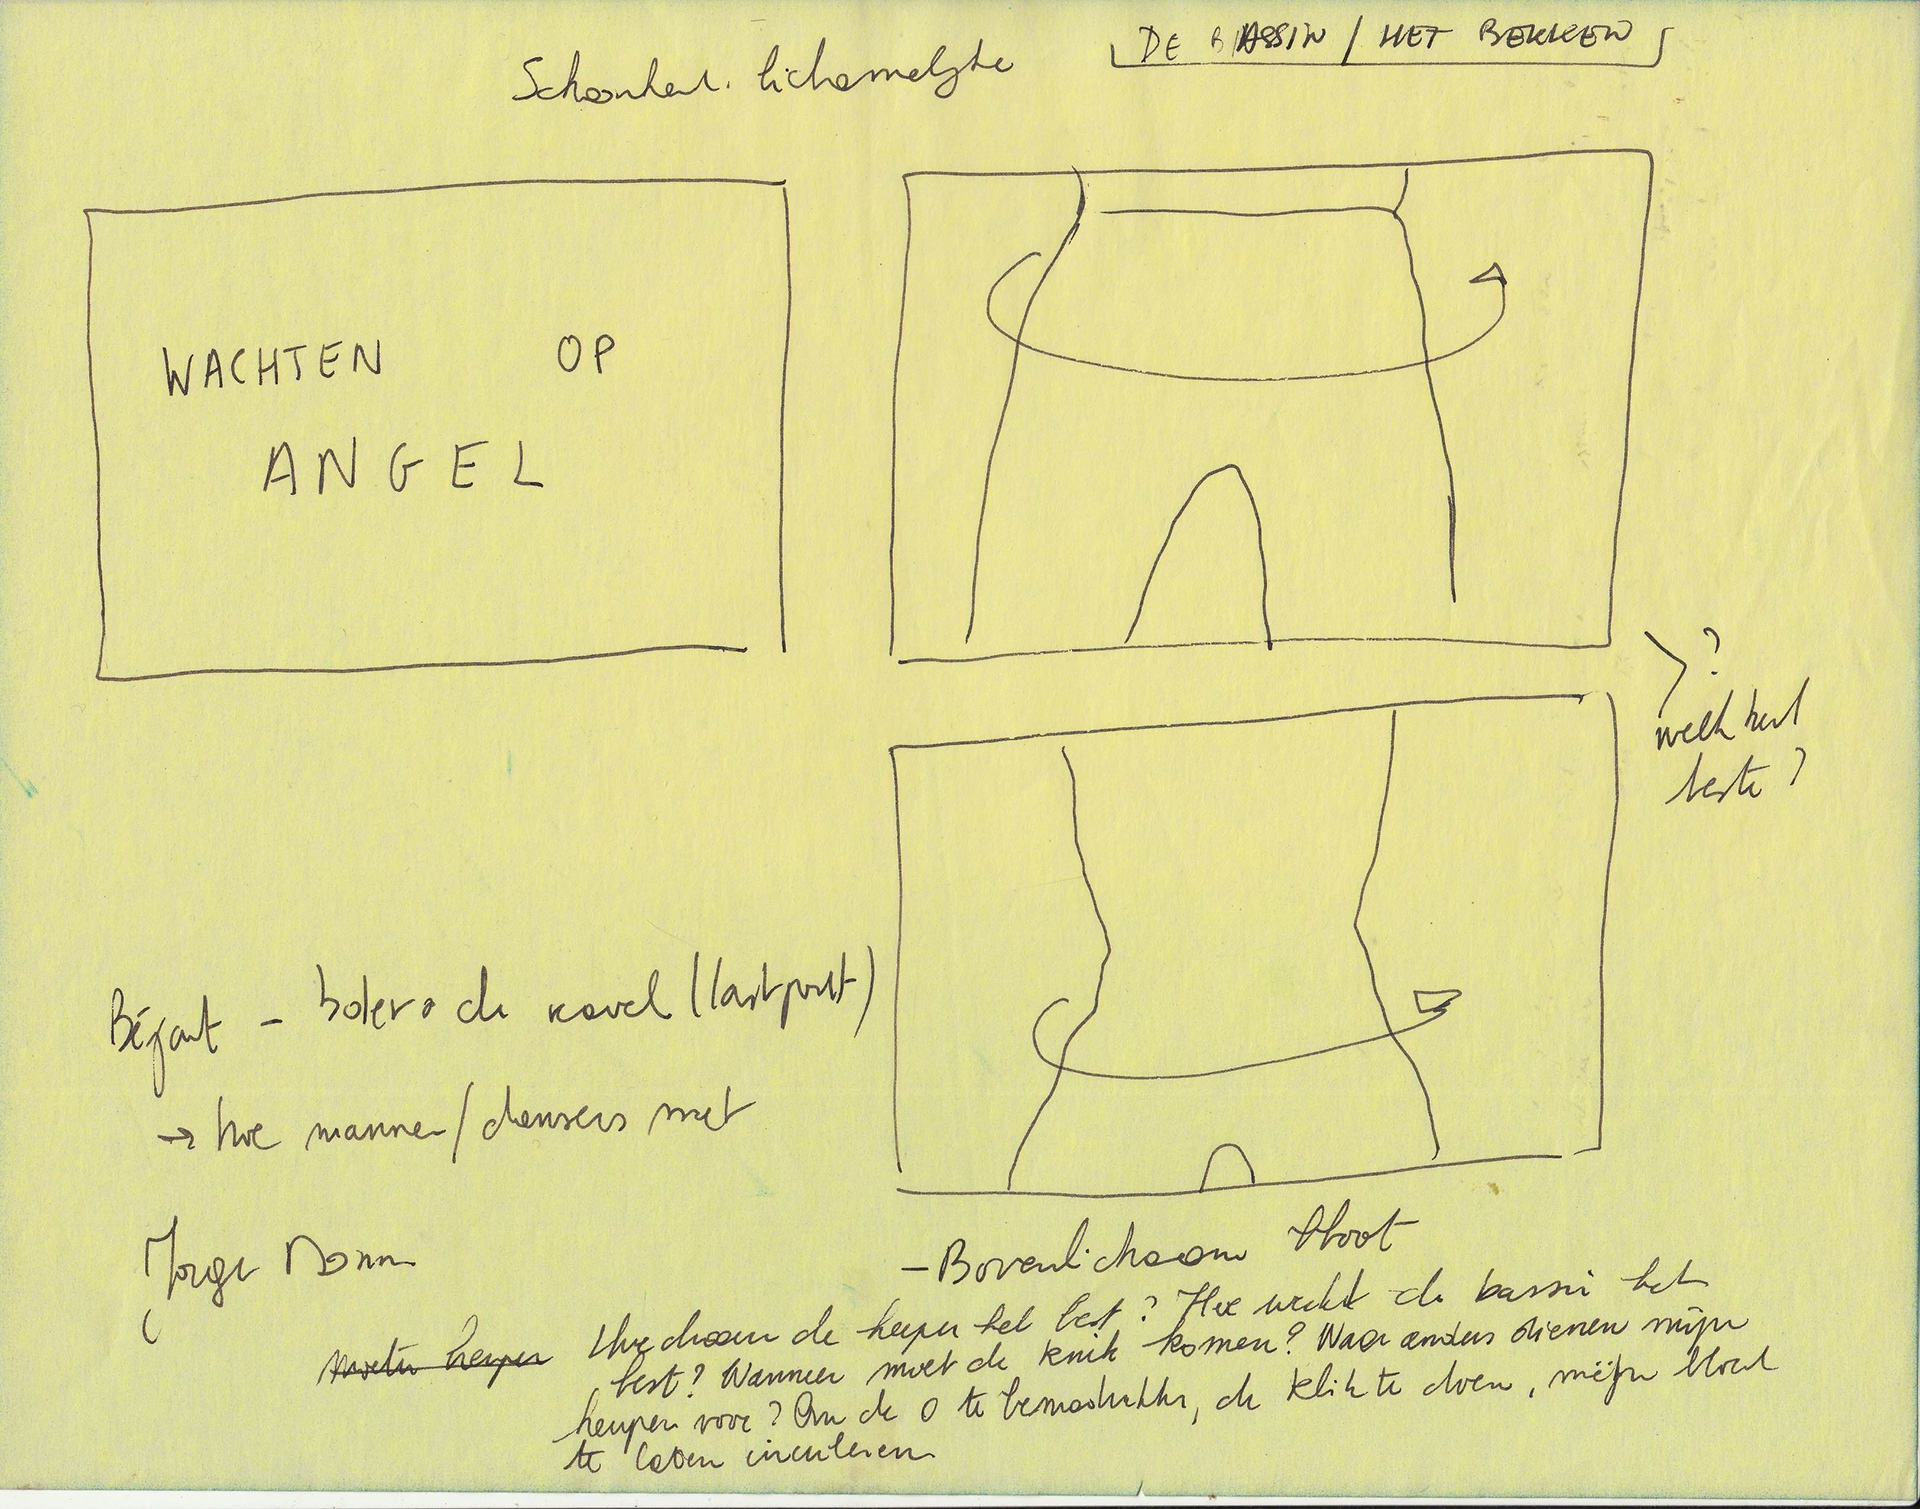 DE BASSIN / HET BEKKEN
Schoonheid. lichamelijke
WACHTEN OP
ANGEL
?
welk het
beste?
Béjart - bolero de ravel (last part)
→ hoe mannen/dansers met
Jorge Donn
- Bovenlichaam bloot
moeten heupen Hoe draaien de heupen het best? Hoe werkt de bassin het
best? Wanneer moet de knik komen? Waar anders dienen mijn
heupen voor? Om de O te bemachtigen, de klik te doen, mijn bloed
te laten circuleren